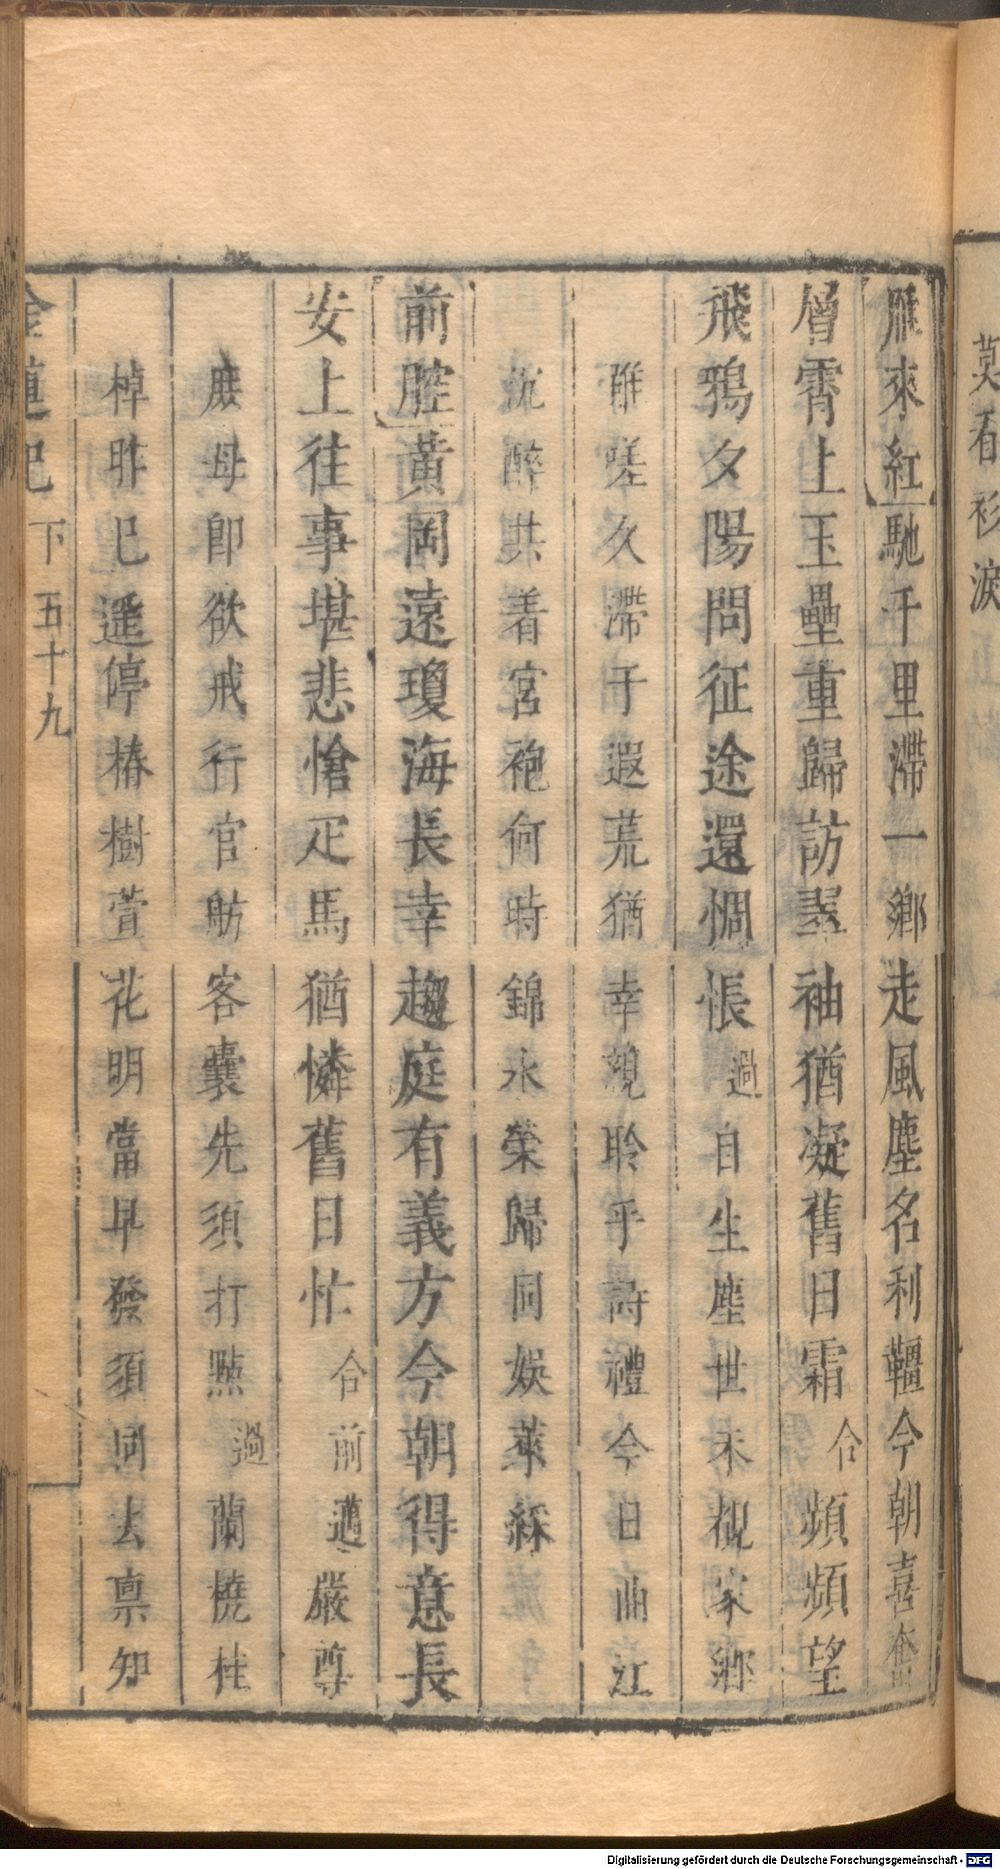 莫看衫淚
雁來紅馳千里滯一鄉走風塵名利韁今朝喜奮
層霄上玉壘重歸訪翠袖猶凝舊日霜合頻頻望
飛鴉夕陽問征途還惆悵過自生塵世未覩家鄉
雖嗟久滯于遐荒猶幸親聆乎詩禮今日曲江
沉醉共着宮袍何時錦衣榮歸同娛萊綵
前腔黃岡遠瓊海長幸趨庭有義方今朝得意長
安上往事堪悲愴疋馬猶憐舊日忙合前邁嚴尊
慈母即欲戒行官舫客囊先須打點過蘭橈桂
棹昨已遥停椿樹萱花明當早發須同去禀知
下 五十九
Digitalisierung gefördert durch die Deutsche Forschungsgemeinschaft - DFG